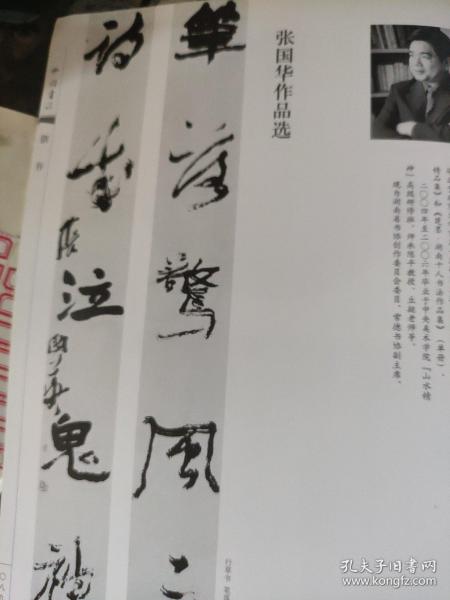 张国华作品选
笔落惊风
诗成泣鬼神
张国华
精品集》和
湖南十人书法作品集》(单册)。
二〇〇四年至二〇〇六年毕业于中央美术学院「山水精
神」高级研修班，师承陈平教授、丘挺老师等。
现为湖南省书协创作委员会委员、常德书协副主席。
行草书
中国书法
新作
孔夫子旧书网